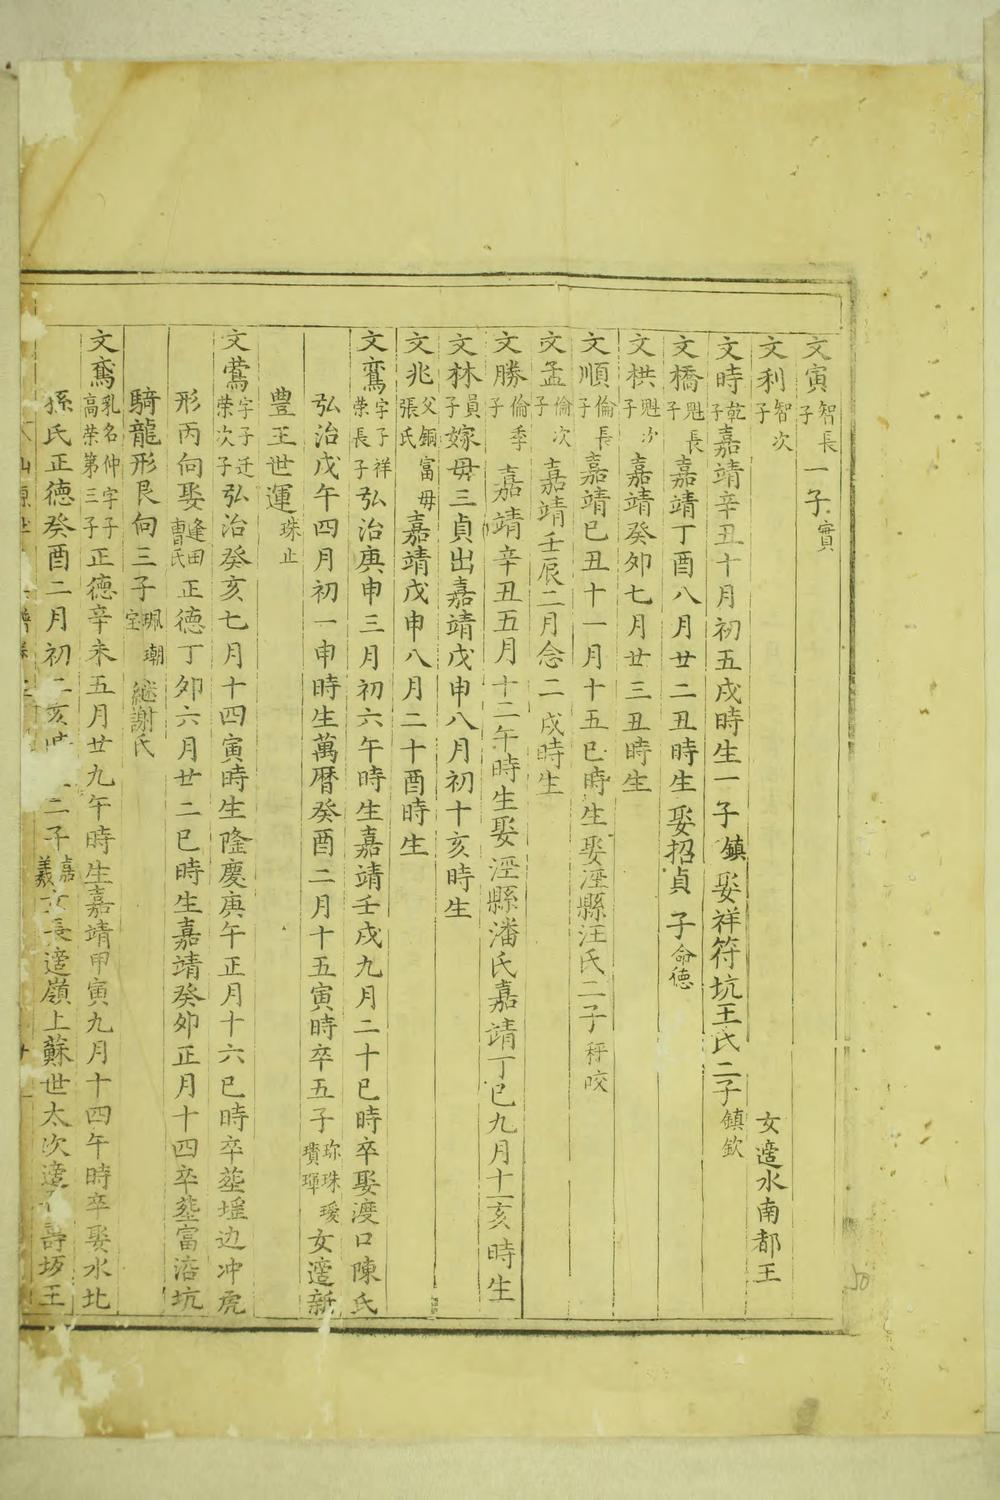 文寅智長子一子實
文利智次子 女適水南都王
文時乾子嘉靖辛丑十月初五戌時生一子鎮娶祥符坑王氏二子鎮欽
文橋魁長子嘉靖丁酉八月廿二丑時生娶招貞子命德
文栱魁次子嘉靖癸卯七月廿三丑時生
文順倫長子嘉靖己丑十一月十五巳時生娶涇縣汪氏二子秤咬
文孟倫次子嘉靖壬辰二月念二戌時生
文勝倫季子嘉靖辛丑五月十二午時生娶涇縣潘氏嘉靖丁巳九月十一亥時生
文林員子嫁母三貞出嘉靖戊申八月初十亥時生
文兆父錮富母張氏嘉靖戊申八月二十酉時生
文鸞字子祥榮長子弘治庚申三月初六午時生嘉靖壬戌九月二十巳時卒娶渡口陳氏
弘治戊午四月初一申時生萬曆癸酉二月十五寅時卒五子珎珠璦瓚琿女適新
豊王世運珠止
文鶯字子迁榮次子弘治癸亥七月十四寅時生隆慶庚午正月十六巳時卒塟塧边冲虎
形丙向娶逢田曹氏正德丁卯六月廿二巳時生嘉靖癸卯正月十四卒塟富㳓坑
騎龍形艮向三子珮瑚宝継謝氏
文鴌乳名仲字子高榮第三子正德辛未五月廿九午時生嘉靖甲寅九月十四午時卒娶水北
孫氏正德癸酉二月初二亥時二子嘉羲女長適嶺上蘇世太次適壽坂王